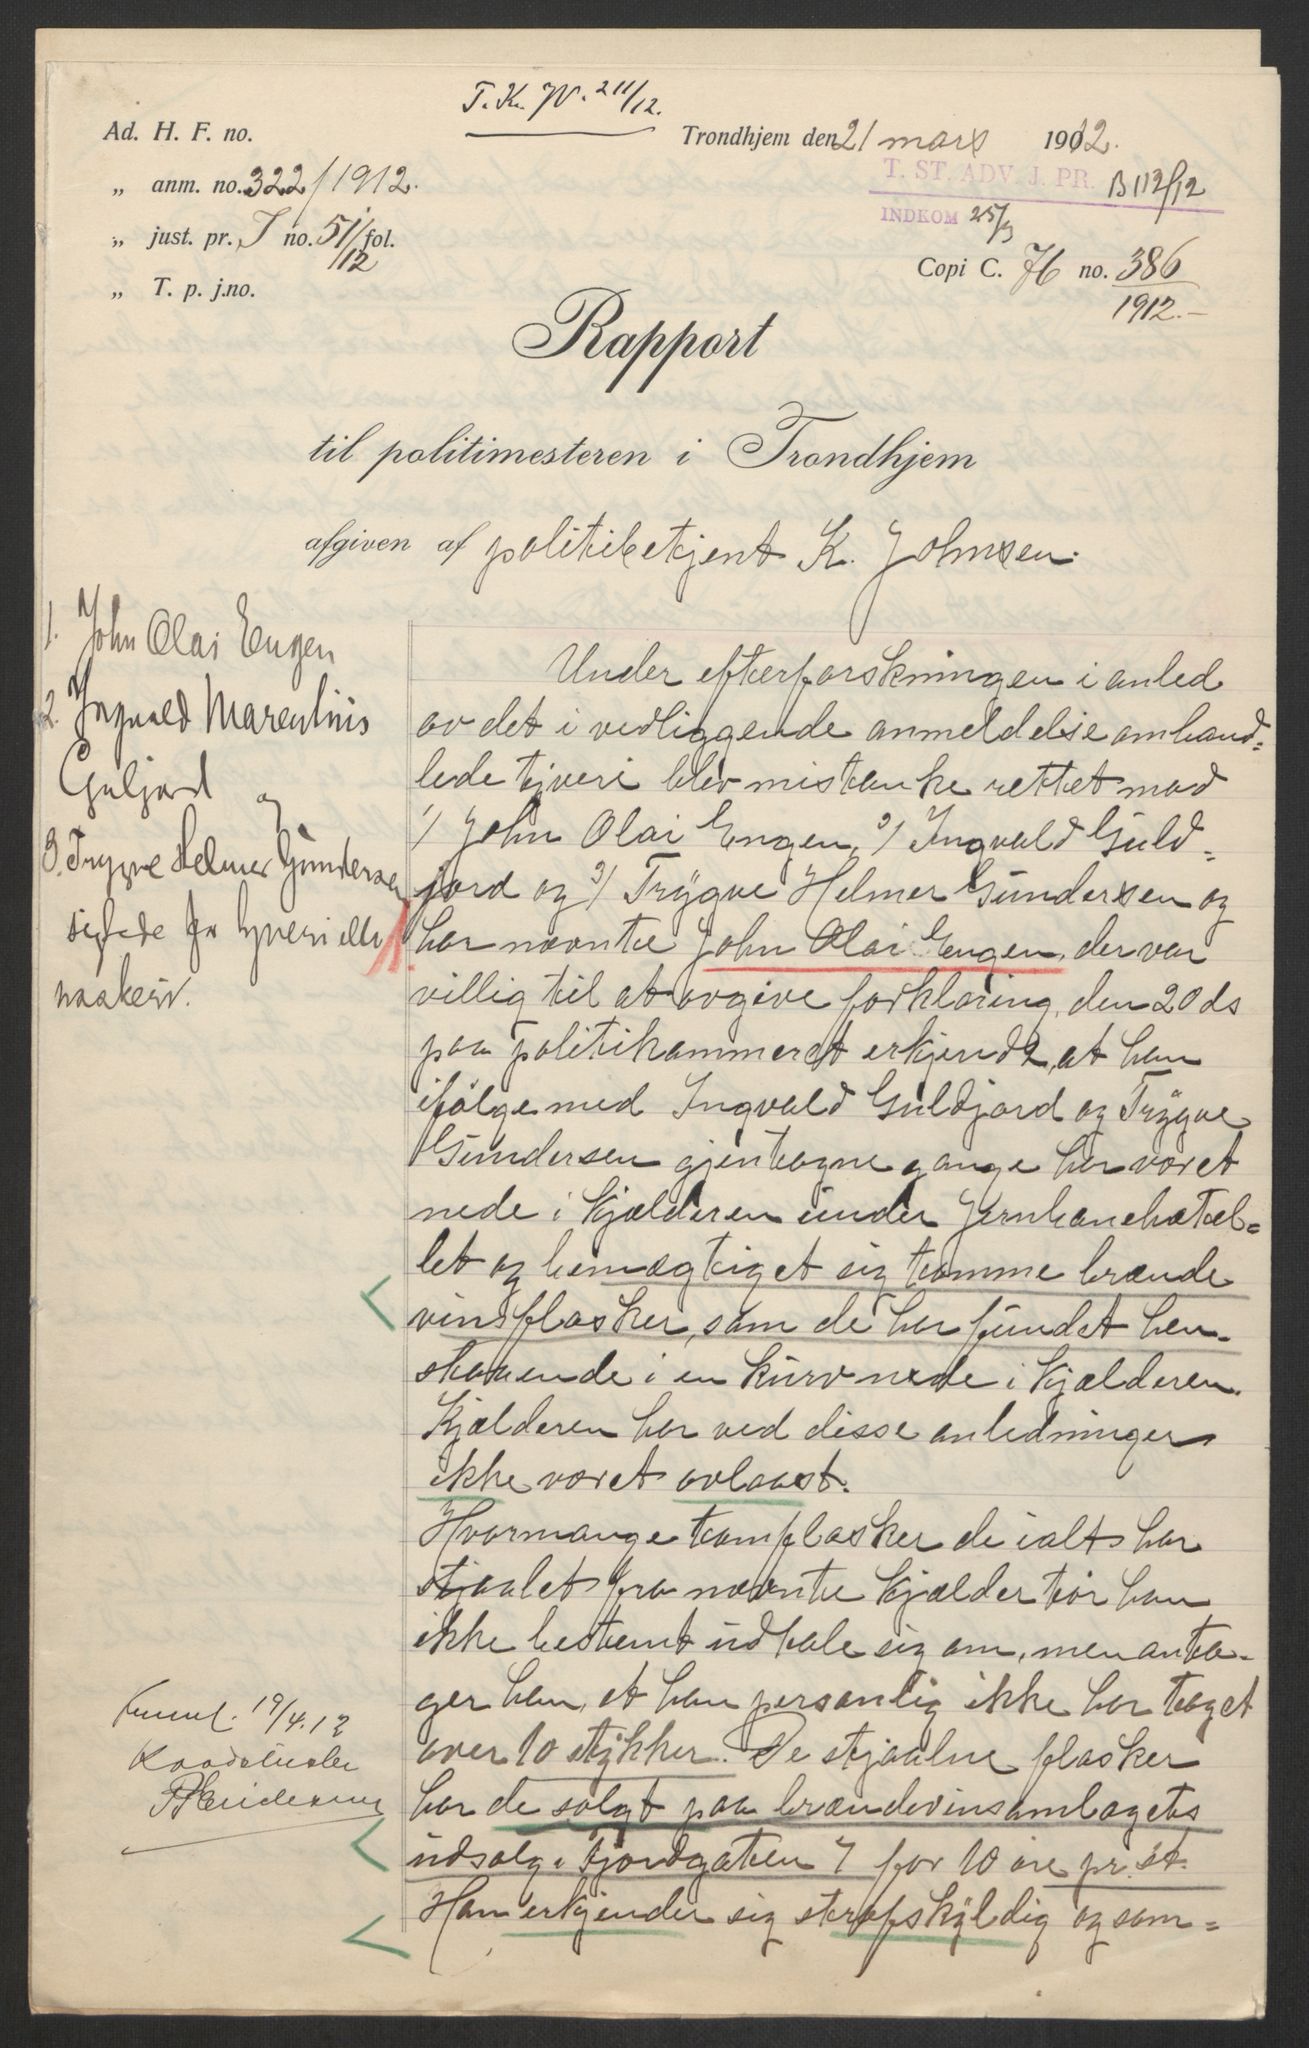 T. K. IV. 211/12.
Ad. H. F. no.
Trondhjem den 21 mars 1912.
„ anm. no. 322/1912.
T. ST. ADV. J. PR. B 112/12
INDKOM 25/3
„ just. pr. I no. 51/12 fol.
Copi C. 76 no. 386
1912.-
„ T. p. j.no.
Rapport
til politimesteren i Trondhjem
afgiven af politibetjent K. Johnsen.
1. John Olai Engen
2. Ingvald Marentius
Guljord og
3. Trygve Helmer Gundersen
sigtede for tyveri eller
naskeri.
Under efterforskningen i anled
av det i vedliggende anmeldelse omhand=
lede tyveri blev mistanke rettet mod
1/ John Olai Engen, 2/ Ingvald Guld=
jord og 3/ Trygve Helmer Gundersen og
har nævnte John Olai Engen, der var
villig til at avgive forklaring, den 20 ds
paa politikammeret erkjendt, at han
ifølge med Ingvald Guldjord og Trygve
Gundersen gjentagne gange har været
nede i kjælderen under Jernbanehotel=
let og bemægtiget sig tomme brænde
vinsflasker, som de har fundet hen-
staaende i en kurv nede i kjælderen.
Kjælderen har ved disse anledninger
ikke været avlaast.
Hvormange tomflasker de ialt har
stjaalet fra nævnte kjælder tør han
ikke bestemt udtale sig om, men anta-
ger han, at han personlig ikke har taget
over 10 stykker. De stjaalne flasker
har de solgt paa brændevinsamlagets
udsalg i Fjordgaten 7 for 10 øre pr. st.
Han erkjender sig strafskyldig og sam=
19/4.12